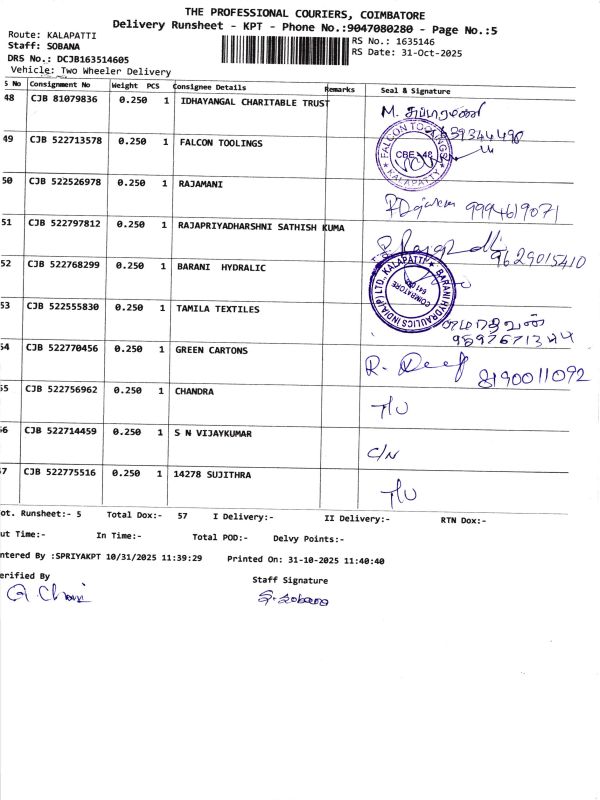 THE PROFESSIONAL COURIERS, COIMBATORE
Delivery Runsheet - KPT - Phone No.:9047080280 - Page No.:5
Route: KALAPATTI
RS No.: 1635146
Staff: SOBANA
RS Date: 31-Oct-2025
DRS No.: DCJB163514605
Vehicle: Two Wheeler Delivery
S No Consignment No Weight PCS Consignee Details Remarks Seal & Signature
48 CJB 81079836 0.250 1 IDHAYANGAL CHARITABLE TRUST M.
49 CJB 522713578 0.250 1 FALCON TOOLINGS FALCON TOOLINGS KALAPATTY
50 CJB 522526978 0.250 1 RAJAMANI 9994619071
51 CJB 522797812 0.250 1 RAJAPRIYADHARSHNI SATHISH KUMA 9629015410
52 CJB 522768299 0.250 1 BARANI HYDRALIC BARANI HYDRAULICS INDIA(P) LTD., KALAPATTI COIMBATORE
53 CJB 522555830 0.250 1 TAMILA TEXTILES
54 CJB 522770456 0.250 1 GREEN CARTONS R. 8190011092
55 CJB 522756962 0.250 1 CHANDRA T/U
56 CJB 522714459 0.250 1 S N VIJAYKUMAR C/N
57 CJB 522775516 0.250 1 14278 SUJITHRA T/U
ot. Runsheet:- 5 Total Dox:- 57 I Delivery:- II Delivery:- RTN Dox:-
ut Time:- In Time:- Total POD:- Delvy Points:-
ntered By :SPRIYAKPT 10/31/2025 11:39:29 Printed On: 31-10-2025 11:40:40
erified By Staff Signature
S. Sobana